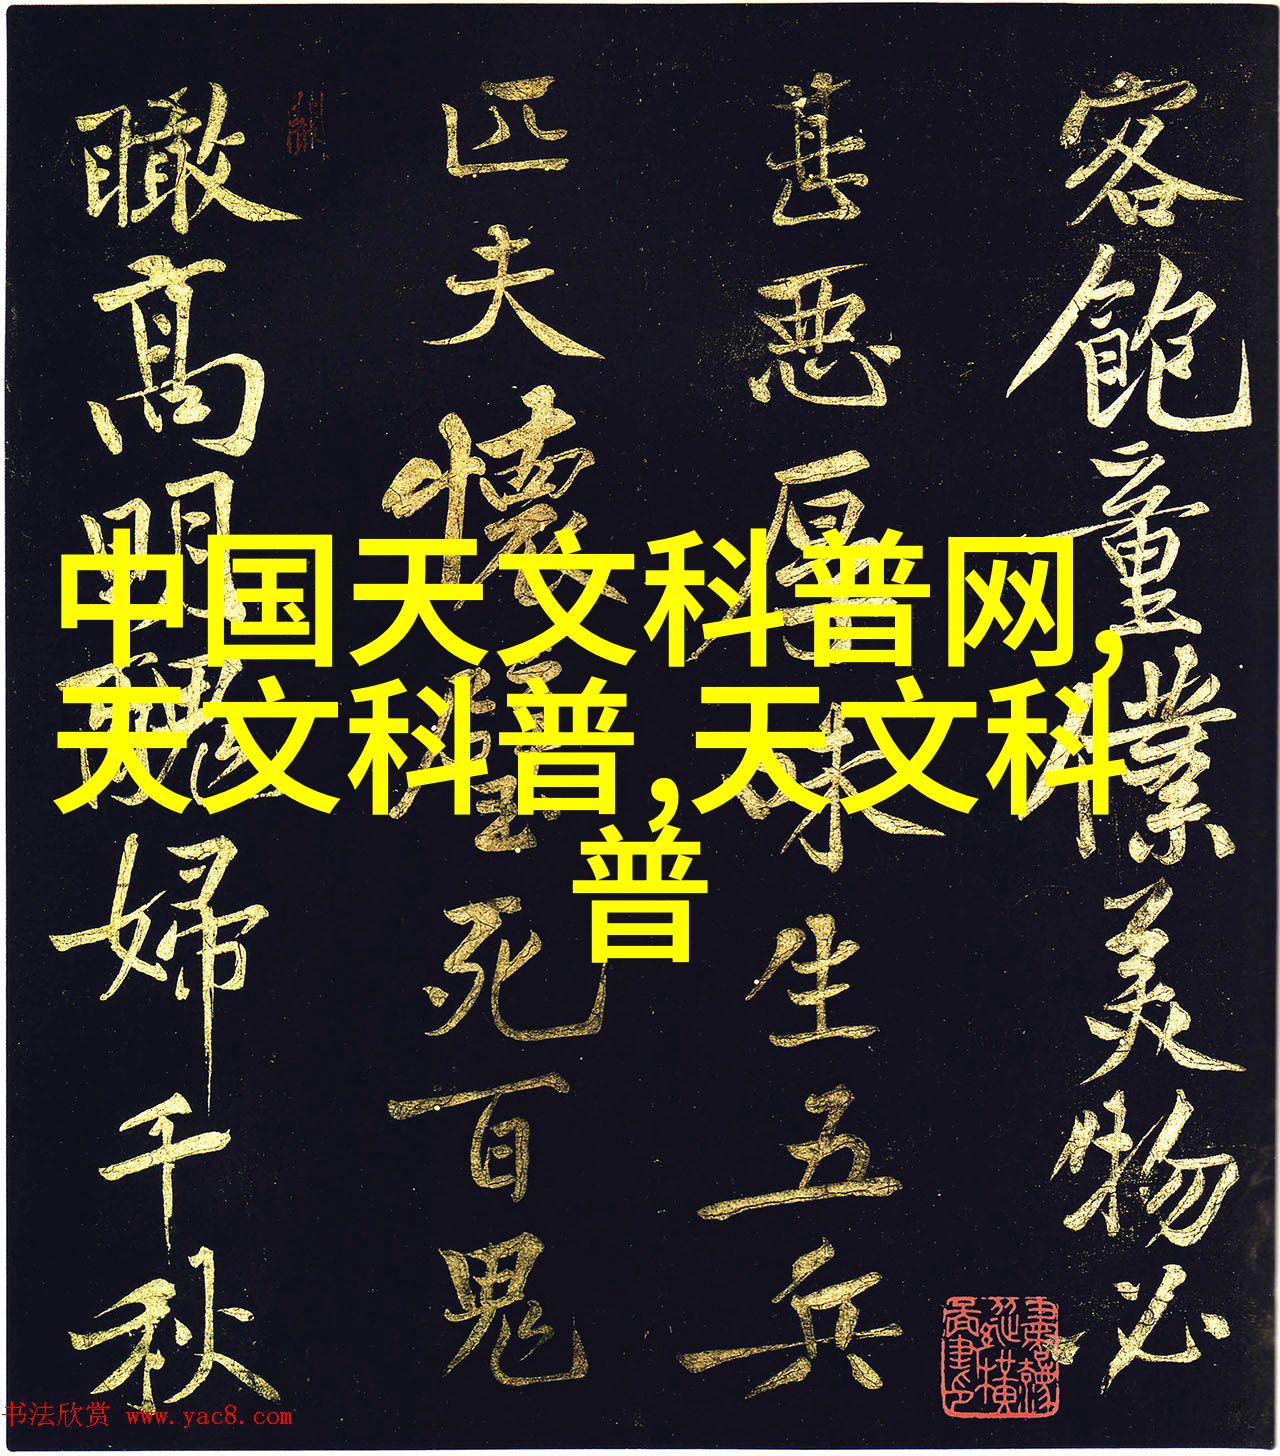 客飽童僕美物必
甚惡厚味生五兵
匹夫懷璧死百鬼
瞰高明醜婦千秋
中国天文科普网,
天文科普,天文科
普
书法欣赏 www.yac8.com